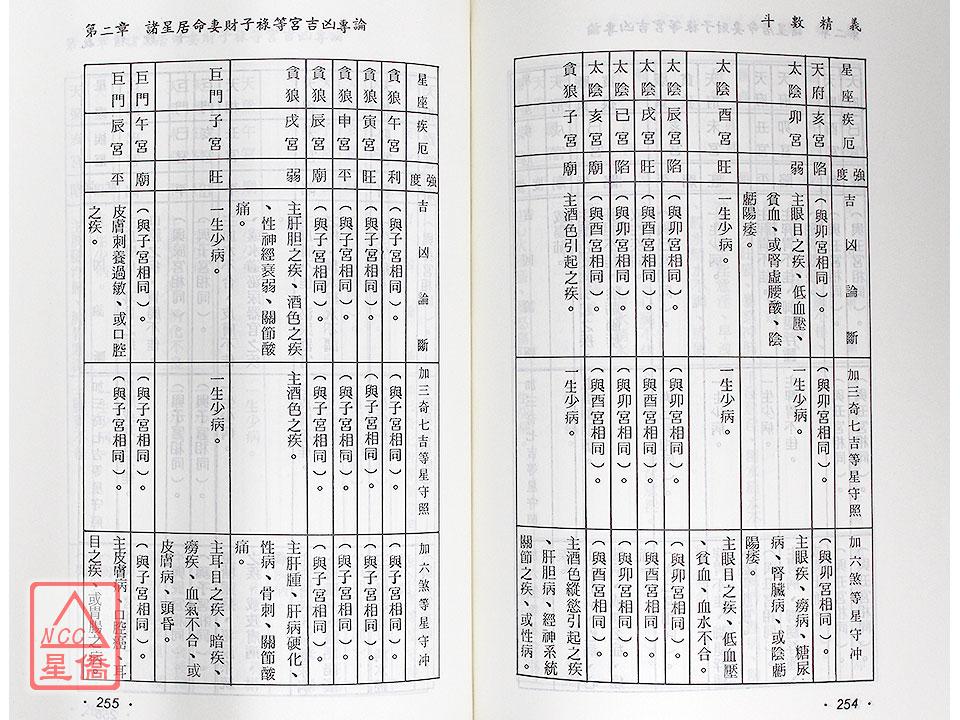 斗數精義
星座疾厄
強度
吉凶論斷
加三奇七吉等星守照
加六煞等星守冲
天府亥宮
陷
（與卯宮相同）。
（與卯宮相同）。
（與卯宮相同）。
太陰卯宮
弱
主眼目之疾、低血壓、
貧血、或腎虛腰酸、陰
虧陽痿。
一生少病。
主眼疾、癆病、糖尿
病、腎臟病、或陰虧
陽痿。
太陰酉宮
旺
一生少病。
一生少病。
主眼目之疾、低血壓
、貧血、血水不合。
太陰辰宮
陷
（與卯宮相同）。
（與卯宮相同）。
（與卯宮相同）。
太陰戌宮
旺
（與酉宮相同）。
（與酉宮相同）。
（與卯宮相同）。
太陰巳宮
陷
（與卯宮相同）。
（與卯宮相同）。
（與酉宮相同）。
太陰亥宮
廟
（與酉宮相同）。
（與酉宮相同）。
（與酉宮相同）。
貪狼子宮
廟
主酒色引起之疾。
一生少病。
主酒色縱慾引起之疾
、肝胆病、經神系統
關節之疾、或性病。
·254·
第二章 諸星居命妻財子祿等宮吉凶專論
貪狼午宮
利
（與子宮相同）。
（與子宮相同）。
（與子宮相同）。
貪狼寅宮
旺
（與子宮相同）。
（與子宮相同）。
（與子宮相同）。
貪狼申宮
平
（與子宮相同）。
（與子宮相同）。
（與子宮相同）。
貪狼辰宮
廟
（與子宮相同）。
（與子宮相同）。
（與子宮相同）。
貪狼戌宮
弱
主肝胆之疾、酒色之疾
、性神經衰弱、關節酸
痛。
主酒色之疾。
主肝腫、肝病硬化、
性病、骨刺、關節酸
痛。
巨門子宮
旺
一生少病。
一生少病。
主耳目之疾、暗疾、
癆疾、血氣不合、或
皮膚病、頭昏。
巨門午宮
廟
（與子宮相同）。
（與子宮相同）。
（與子宮相同）。
巨門辰宮
平
皮膚刺養過敏、或口腔
之疾。
（與子宮相同）。
主皮膚病、口腔癌、耳
目之疾、或胃腸之疾。
·255·
NCC
星僑